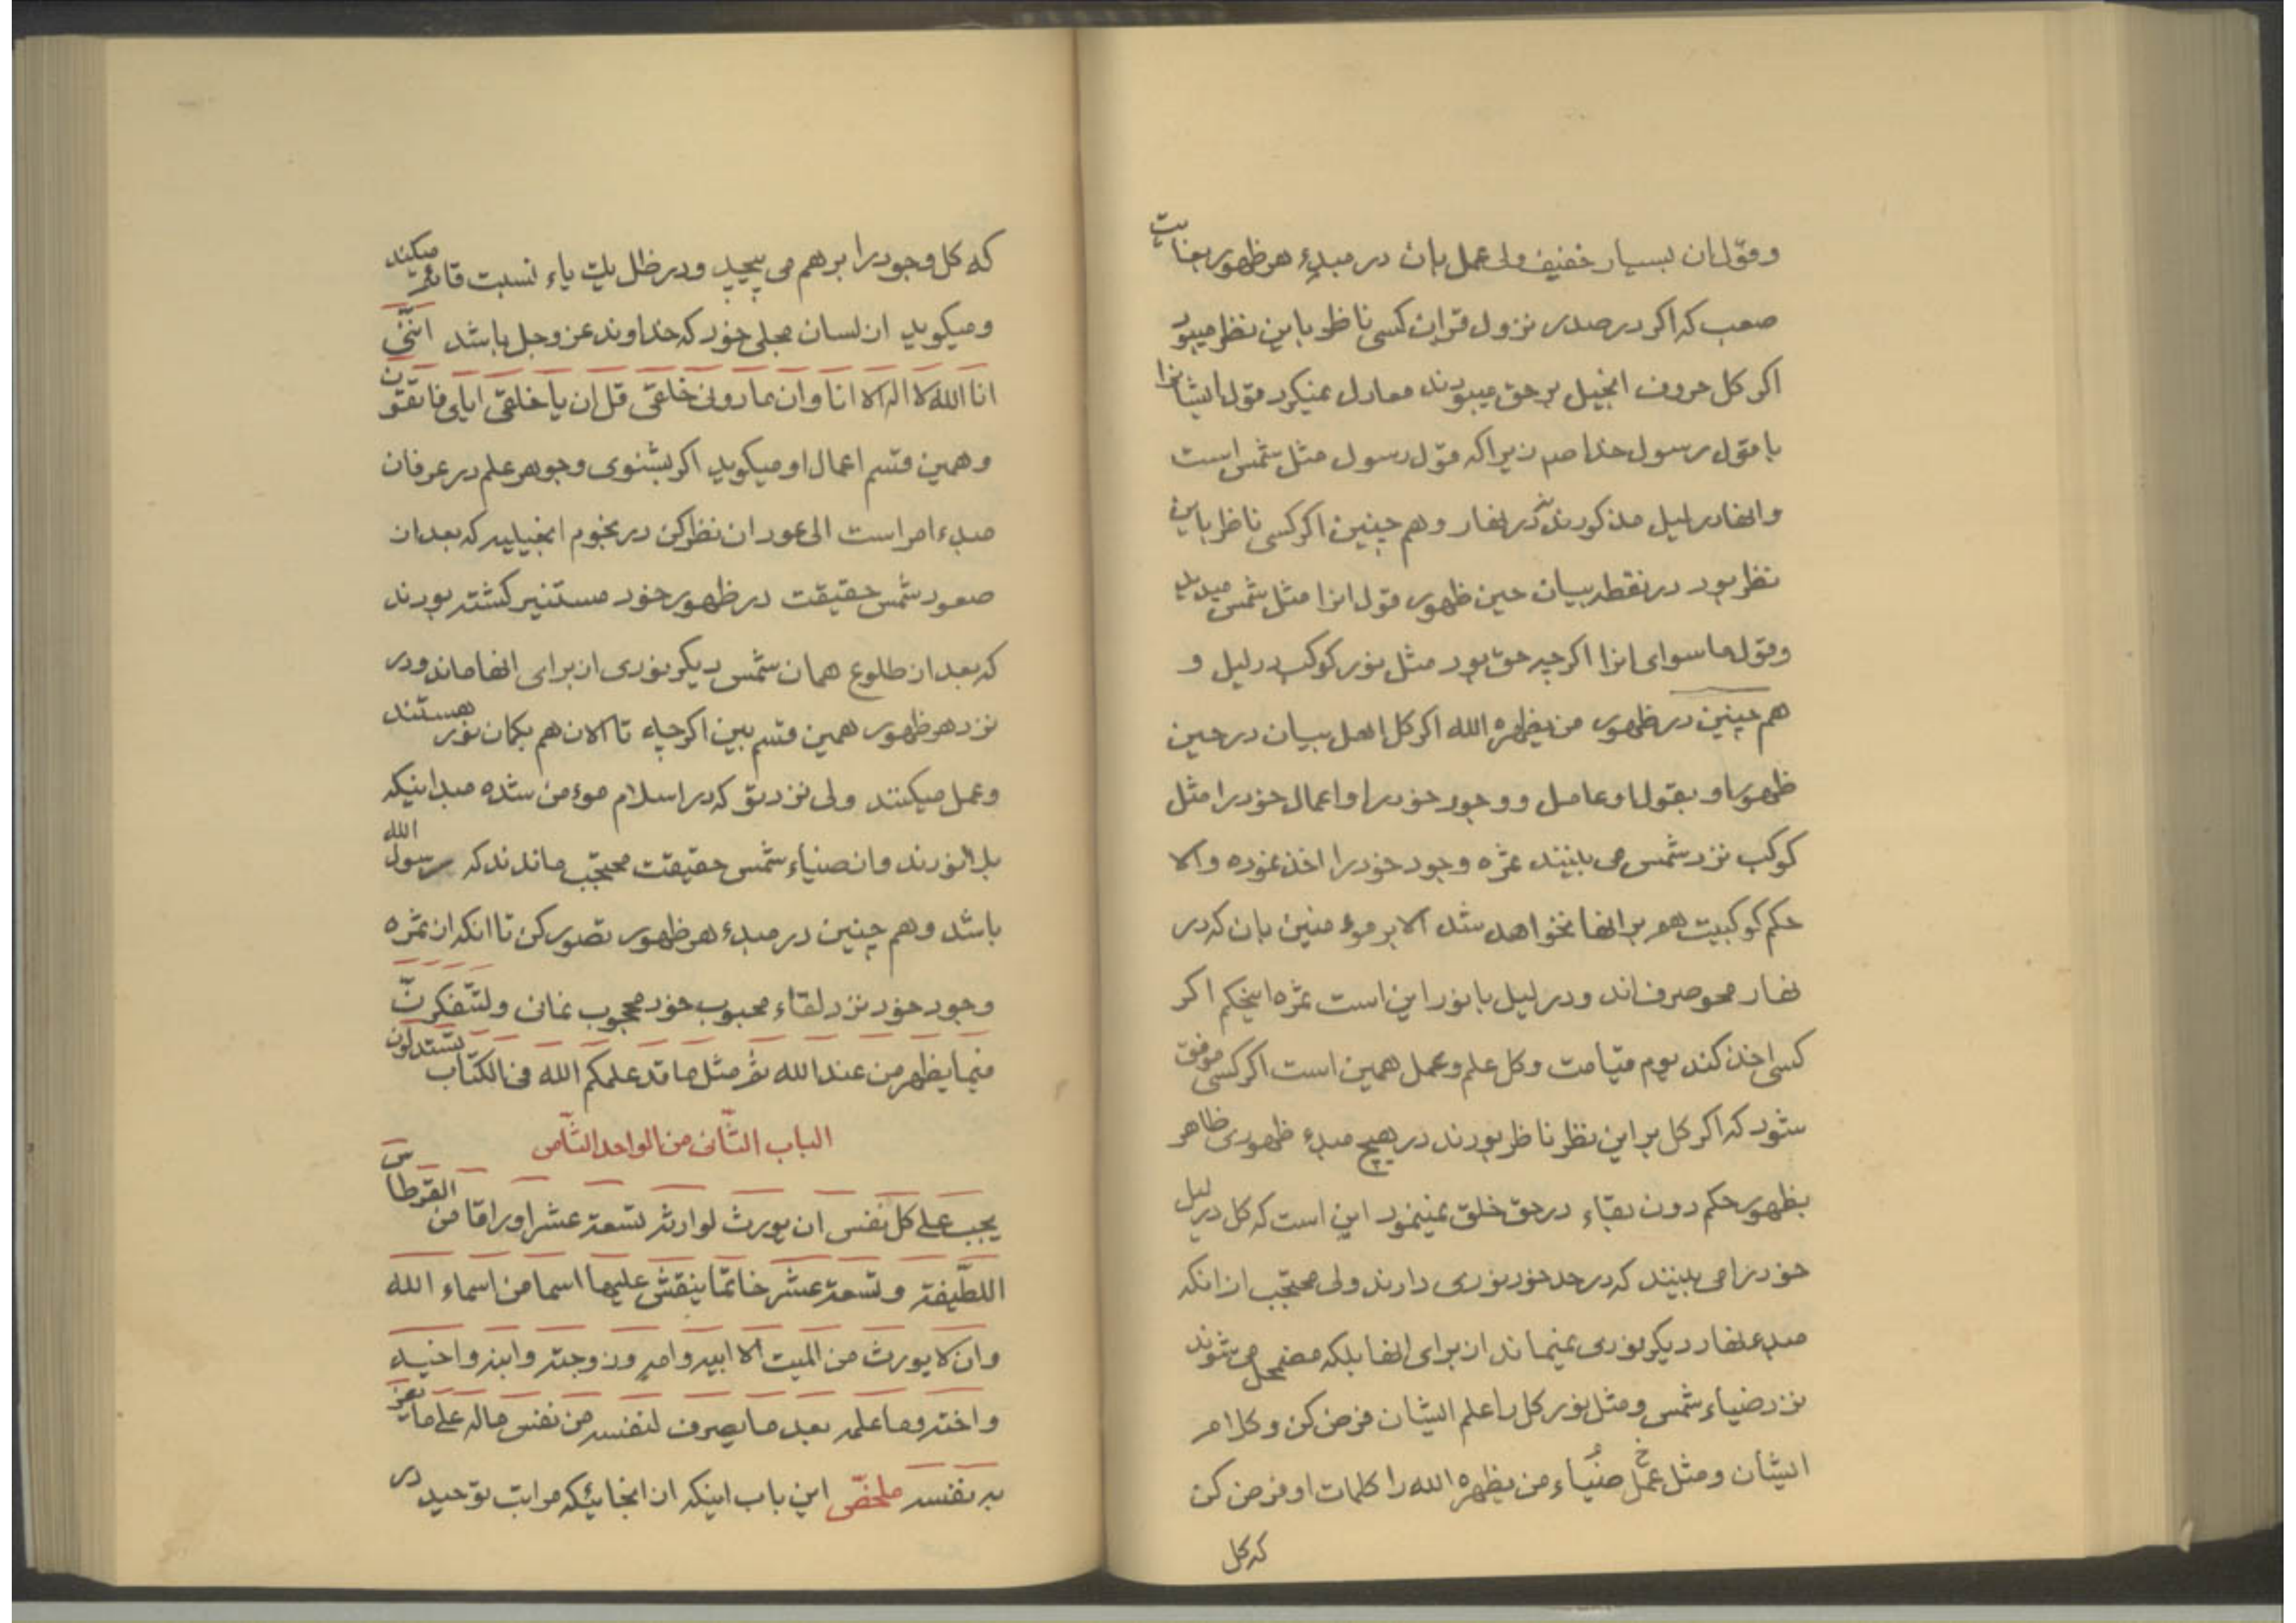 وقول ان بسیار خفیف ولی عمل بان در مبدء هر ظهور بغایت
صعب که اکر در صدر نزول قران کسی ناظر باین نظر میبود
اکر کل حروف انجیل بر حق میبودند معادل نمیکرد قول ایشانرا
با قول رسول خدا صم زیرا که قول رسول مثل شمس است
وانها در لیل مذکورند نه در نهار وهم چنین اکر کسی ناظر باین
نظر بود در نقطه بیان حین ظهور قول انرا مثل شمس میدید
وقول ماسوای انرا اکرچه حق بود مثل نور کوکب در لیل و
هم چنین در ظهور من یظهره الله اکر کل اهل بیان در حین
ظهور او بقول او عامل و وجود خود را واعمال خود را مثل
کوکب نزد شمس می بینند ثمره وجود خود را اخذ نموده والا
حکم کوکبیت هم بر انها نخواهد شد الا بر موءمنین بان که در
نهار محو صرف اند ودر لیل با نور این است ثمره اینحکم اکر
کسی اخذ کند یوم قیامت وکل علم وعمل همین است اکر کسی موفق
شود که اکر کل بر این نظر ناظر بودند در هیچ مبدء ظهوری ظاهر
بظهور حکم دون بقاء در حق خلق نمینمود این است که کل در لیل
خود را می بینند که در حد خود نوری دارند ولی محتجب از انکه
مبدء نهار دیکر نوری نمیماند از برای انها بلکه مضمحل می شوند
نزد ضیاء شمس ومثل نور کل را علم ایشان فرض کن وکلام
ایشان ومثل عمل ضیاء من یظهره الله را کلمات او فرض کن
که کل
که کل وجود را برهم می پیچید ودر ظل یک یاء نسبت قائم میکند
ومیکوید از لسان مجلی خود که خداوند عز وجل باشد اننی
انا الله لا اله الا انا وان ما دونی خلقی قل ان یا خلقی ایای فاتقون
وهمین قسم اعمال او میکوید اکر بشنوی وجوهر علم در عرفان
مبدء امر است الی عود ان نظر کن در نجوم انجیلیه که بعد از
صعود شمس حقیقت در ظهور خود مستنیر کشته بودند
که بعد از طلوع همان شمس دیکر نوری از برای انها ماند ودر
نزد هر ظهور همین قسم ببین اکرچه تا الان هم بکمان نور هستند
وعمل میکنند ولی نزد تو که در اسلام موءمن شده میدانیکه
بلا نورند واز ضیاء شمس حقیقت محتجب ماندند که رسول الله
باشد وهم چنین در مبدء هر ظهور تصور کن تا انکه از ثمره
وجود خود نزد لقاء محبوب خود محجوب نمانی ولتتفکرن
فیما یظهر من عند الله ثم مثل ما قد علمکم الله فی الکتاب تستدلون
الباب الثانی من الواحد الثامن
یجب علی کل نفس ان یورث لوارثه تسعة عشر اوراقا من القرطاس
اللطیفة وتسعة عشر خاتما ینقش علیها اسما من اسماء الله
وان لا یورث من المیت الا ابیه وامه وزوجته وابنه واخیه
واخته وما علمه بعد ما یصرف لنفسه من نفس ماله علی ما یعز
به نفسه ملخص این باب اینکه از انجائیکه مراتب توحید در